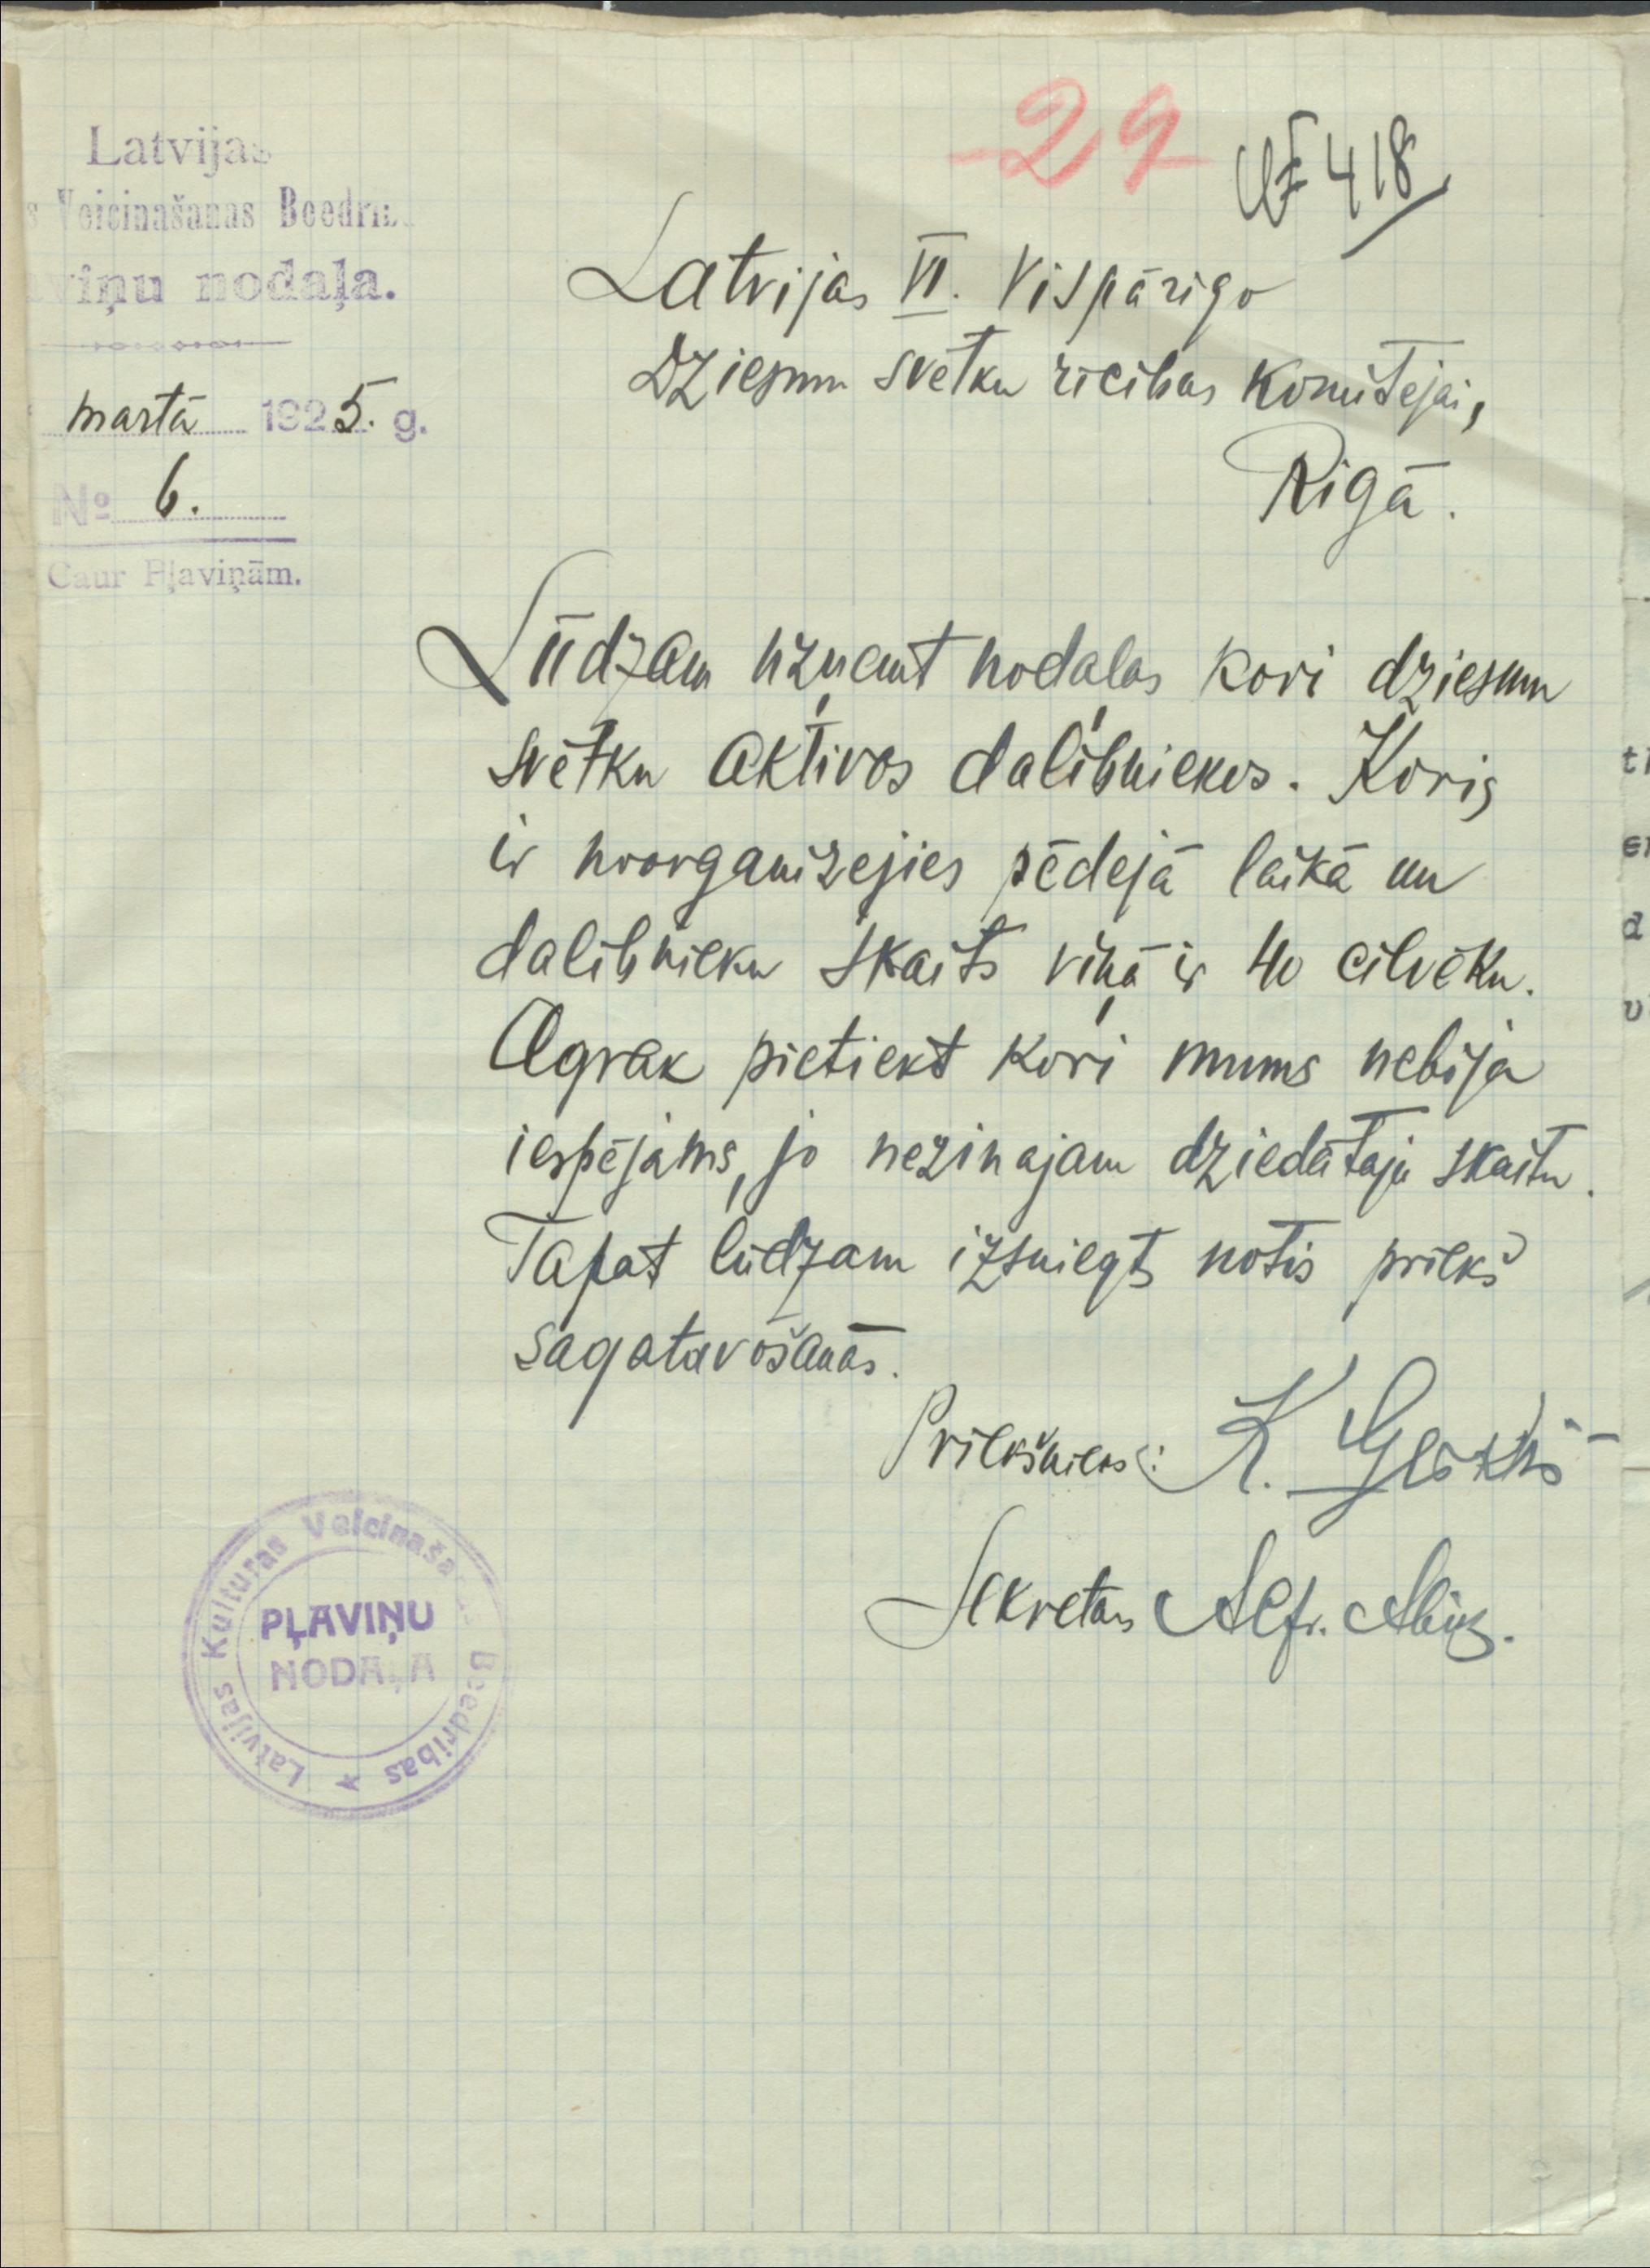 29
№ 418
Latvijas
s Veicinašanas Beedrib
viņu nodaļa.
martā 1925. g.
№ 6.
Caur Pļaviņām.
Latvijas VI. Vispārigo
Dziesmu svētku rīcibas komitejai,
Rīgā.
Lūdzam uzņemt nodaļas kori dziesmu
svētku aktivos dalībniekos. Koris
ir noorganizejies pēdejā laikā un
dalibnieku skaits viņā ir 40 cilvēku.
Agrak pieteikt kori mums nebija
iespējams, jo nezinajam dziedātaju skaitu.
Tapat lūdzam izsniegt notis priekš
sagatavošanās.
Priekšnieks: K.
Sekretars Alfr.
Latvijas Kulturas Veicinaša Beedribas
PĻAVIŅU
NODAĻA